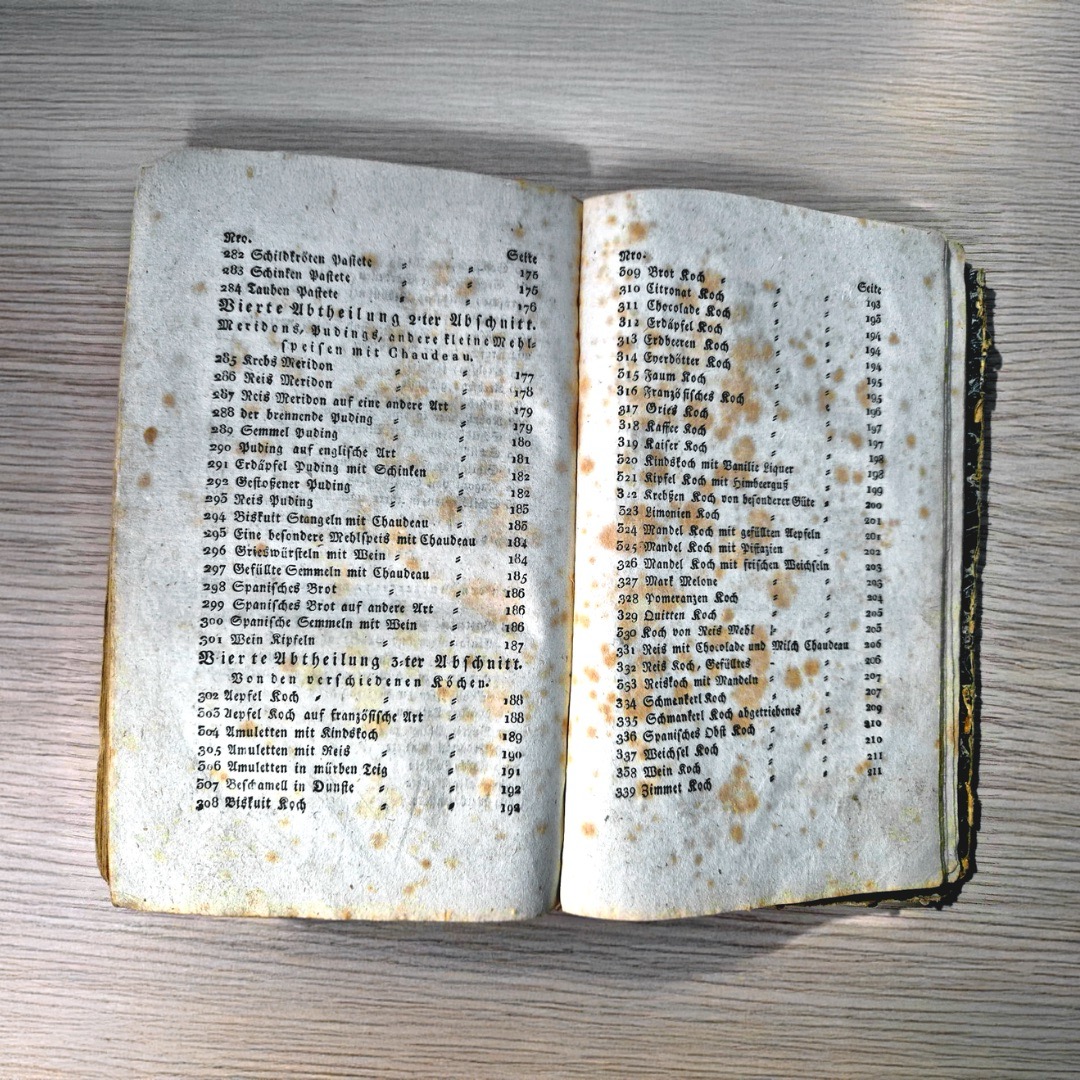 Nro. Seite
282 Schildkröten Pastete = = 175
283 Schinken Pastete = = 175
284 Tauben Pastete = = 176
Vierte Abtheilung 2=ter Abschnitt.
Meridons, Pudings, andere kleine Mehl=
speisen mit Chaudeau.
285 Krebs Meridon = = 177
286 Reis Meridon = = 178
287 Reis Meridon auf eine andere Art = 179
288 der brennende Puding = = 179
289 Semmel Puding = = 180
290 Puding auf englische Art = 181
291 Erdäpfel Puding mit Schinken = 182
292 Gestoßener Puding = = 182
293 Reis Puding = = 183
294 Biskuit Stangeln mit Chaudeau = 183
295 Eine besondere Mehlspeis mit Chaudeau 184
296 Grieswürsteln mit Wein = = 184
297 Gefüllte Semmeln mit Chaudeau = 185
298 Spanisches Brot = = 186
299 Spanisches Brot auf andere Art = 186
300 Spanische Semmeln mit Wein = 186
301 Wein Kipfeln = = 187
Vierte Abtheilung 3=ter Abschnitt.
Von den verschiedenen Köchen.
302 Aepfel Koch = = = 188
303 Aepfel Koch auf französische Art = 188
304 Amuletten mit Kindskoch = = 189
305 Amuletten mit Reis = = 190
306 Amuletten in mürben Teig = 191
307 Beschamell in Dunste = = 192
308 Biskuit Koch = = 192
Nro. Seite
309 Brot Koch = = 193
310 Citronat Koch = = 193
311 Chocolade Koch = = 194
312 Erdäpfel Koch = = 194
313 Erdbeeren Koch = = 194
314 Eyerdötter Koch = = 195
315 Faum Koch = = 195
316 Französisches Koch = = 196
317 Gries Koch = = 197
318 Kaffee Koch = = 197
319 Kaiser Koch = = 198
320 Kindskoch mit Vanilie Liquer = 198
321 Kipfel Koch mit Himbeerguß = 199
322 Krebßen Koch von besonderer Güte = 200
323 Limonien Koch = = 201
324 Mandel Koch mit gefüllten Aepfeln 201
325 Mandel Koch mit Pistazien = 202
326 Mandel Koch mit frischen Weichseln 203
327 Mark Melone = = 203
328 Pomeranzen Koch = = 204
329 Quitten Koch = = 205
330 Koch von Reis Mehl = = 205
331 Reis mit Chocolade und Milch Chaudeau 206
332 Reis Koch, Gefülltes = = 206
333 Reiskoch mit Mandeln = = 207
334 Schmenkerl Koch = = 207
335 Schmankerl Koch abgetriebenes = 209
336 Spanisches Obst Koch = = 210
337 Weichsel Koch = = 210
338 Wein Koch = = 211
339 Zimmet Koch = = 211